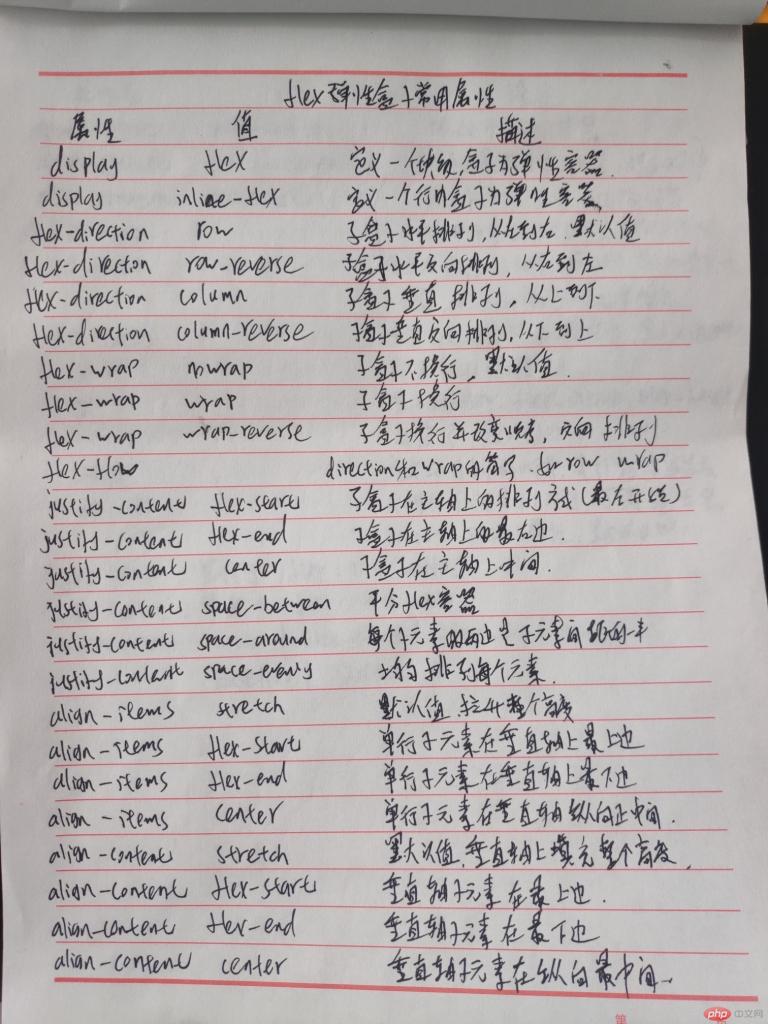 flex 弹性盒子常用属性
属性 值 描述
display flex 定义一个块级盒子为弹性容器.
display inline-flex 定义一个行内盒子为弹性容器
flex-direction row 子盒子水平排列,从左到右.默认值
flex-direction row-reverse 子盒子水平反向排列,从右到左
flex-direction column 子盒子垂直排列,从上到下
flex-direction column-reverse 子盒子垂直反向排列,从下到上
flex-wrap nowrap 子盒子不换行,默认值.
flex-wrap wrap 子盒子换行
flex-wrap wrap-reverse 子盒子换行并改变 反向排列
flex-flow direction和wrap的简写.如row wrap
justify-content flex-start 子盒子在主轴上的排列方式(最左开始)
justify-content flex-end 子盒子在主轴上的最右边.
justify-content center 子盒子在主轴上中间.
justify-content space-between 平分flex容器
justify-content space-around 每个子元素的两边是子元素间距的一半
justify-content space-evenly 均匀排列每个元素.
align-items stretch 默认值,拉升整个高度
align-items flex-start 单行子元素在垂直轴上最上边
align-items flex-end 单行子元素在垂直轴上最下边
align-items center 单行子元素在垂直轴纵向正中间.
align-content stretch 默认值,垂直轴上填充整个高度.
align-content flex-start 垂直轴子元素在最上边.
align-content flex-end 垂直轴子元素在最下边
align-content center 垂直轴子元素在纵向最中间.
第
php 中文网